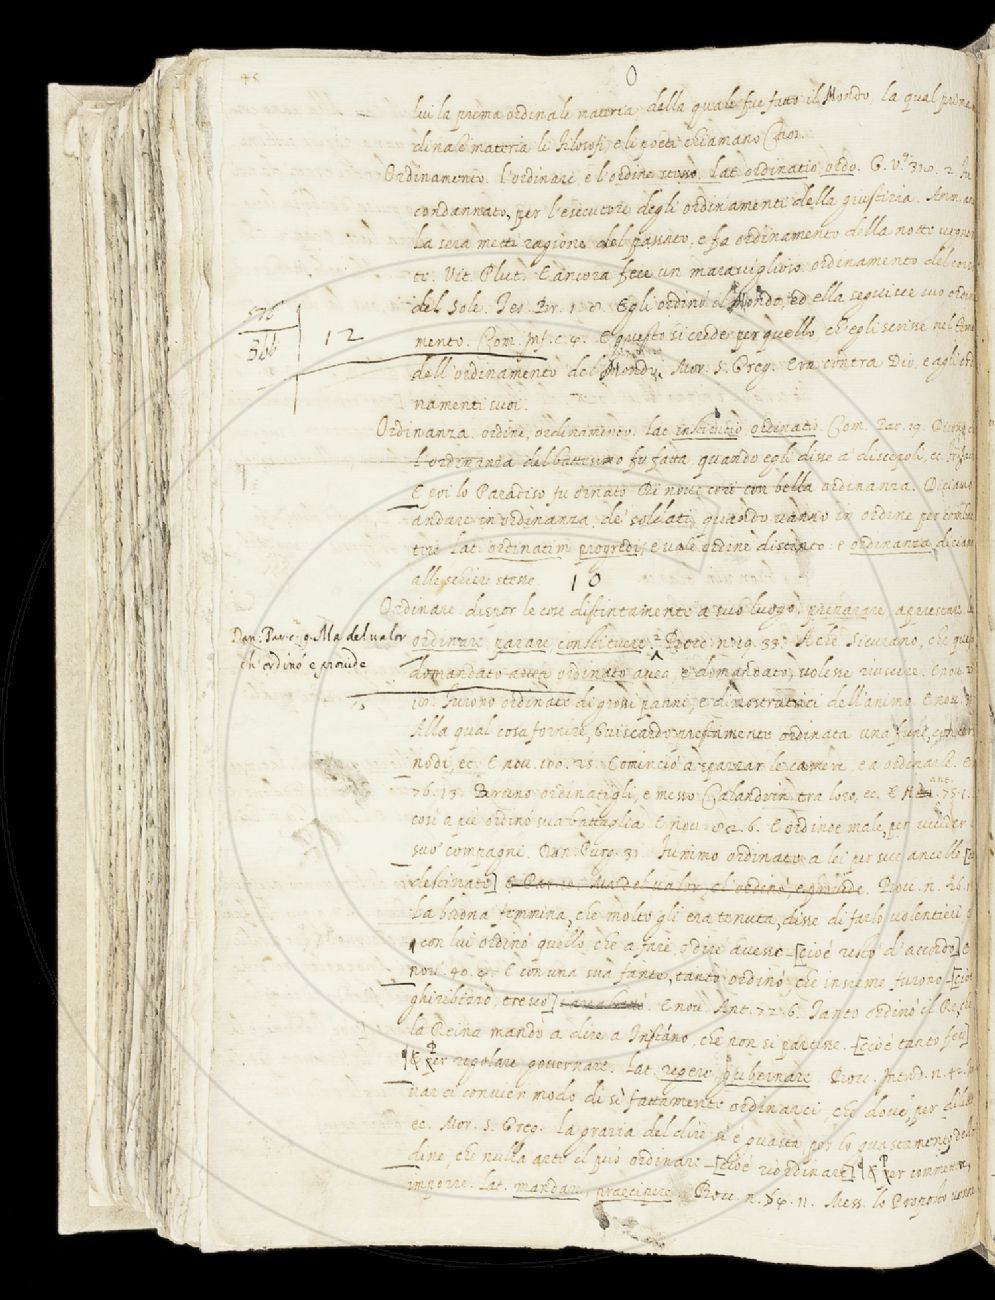 45
O
lui la prima ordinale materia, della quale fue fatto il Mondo, la qual prima
dinale materia li filosofi, e li poeti chiamano Caos.
Ordinamento. l'ordinare, e l'ordine stesso. lat. ordinatio, ordo. G. V. 310. 2.
condannato, per l'esecutore degli ordinamenti della giustizia.
La sera metti ragione del passato, e fa ordinamento della notte
to. Vit. Plut. E ancora fece un maraviglioso ordinamento del
del Sole. Tes. Br. 1. 8. Egli ordinò el Mondo, ed ella seguisce suo
576
Bob
12
mento. Com. Inf. c. 4. E questo si crede per quello, ch'egli scrisse nel
dell'ordinamento del Mondo. Mor. S. Greg. Era contra Dio, e agli
namenti suoi.
Ordinanza. ordine, ordinamento. lat. institutio, ordinatio. Com. Par. 19.
l'ordinanza del battesimo fu fatta, quando egli disse a' discepoli, ec.
E poi lo Paradiso fu ornato di nove cori con bella ordinanza. Diciamo
andare in ordinanza, de' soldati, quando vanno in ordine per
tere lat. ordinatim progredi, e vale ordine distinto: e ordinanza, diciamo
alle schiere stesse.
10
Ordinare. dispor le cose distintamente a suo luogo, preparare, apprestare.
Dan: Par: c: 9. Ma del valor
ch'ordinò e provide
ordinare, parare, constituere. Bocc. n. 19. 33. A che Sicurano, che
domandato avea ordinato avea, e domandato, volesse riuscire. E nov.
15
100. furono ordinate di grossi panni, e dimostratici dell'animo. E nov.
Alla qual cosa fornire, Guiscardo prestamente ordinata una fune, con
nodi, ec. E nov. 100. 25. Cominciò a spazzar le camere, e a ordinarle. E
76. 13. Bruno ordinatigli, e messo Calandrin tra loro, ec. E ant. 75. 1.
così a piè ordinò sua battaglia. E nov. 82. 6. E ordinoe male, per uccider
suo' compagni. Dan. Purg. 31. Fummo ordinate a lei per sue ancelle [
destinate] E Par. 10. Ma del valor, ch'ordinò, e provide. Bocc. n. 26.
La buona femmina, che molto gli era tenuta, disse di farlo volentieri
con lui ordinò quello, che a fare, o dire avesse. [cioè restò d'accordo] E
nov. 40. 4. E con una sua fante, tanto ordinò, che insieme furono. [cioè
ghiribizzò, tresco] E nov. Ant. 72. 6. Tanto ordinò il Re, e
la Reina mandò a dire a Tristano, che non si partisse. [cioè tanto fece]
¶ & Per regolare, governare. lat. regere, gubernare. Bocc. Introd. n. 42.
var ci convien modo di sì fattamente ordinarci, che dove, per
ec. Mor. S. Greg. La grazia del dire si è guasta, per lo guastamento
dine, che nulla arte el può ordinare. [cioè riordinare] ¶ & Per commettere,
imporre. lat. mandare, praecipere. Bocc. n. 84. 11. Mess. lo Proposto